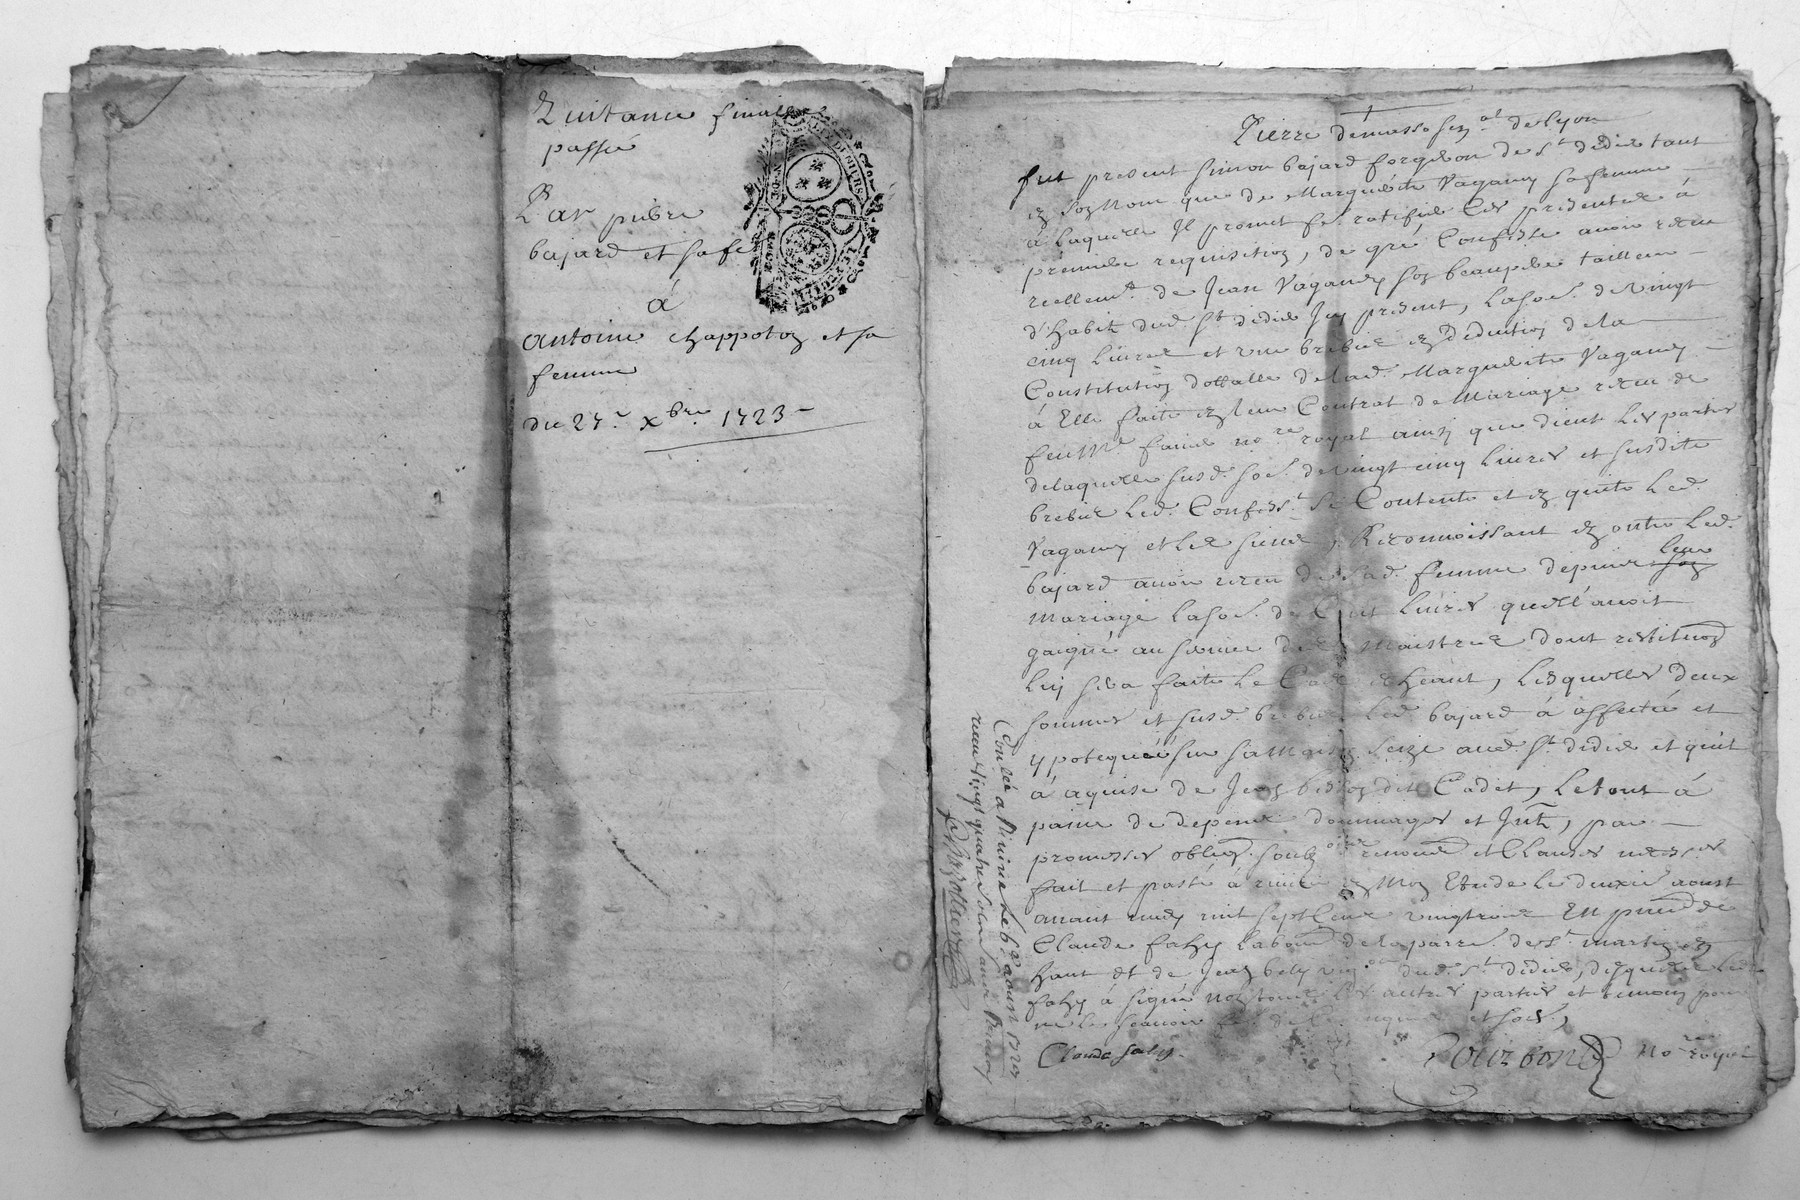 Quittance finalle
passée
Par pierre
bajard et sa fe
á
antoine chappoton et sa
femme
du 27e xbre 1723
Pierre de lyon
fut present simon bajard forgeron de st didier tant
en son nom que de Marguerite Vaganey sa femme
a laquelle Il promet fe ratifier Ces presentes á
premiere requisition, de gré Confesse avoir receu
reellemt de Jean Vaganey son beaupere tailleur
d'habit dud. st didier Icy present, la soe. de vingt
cinq livres et une brebis en deduction de la
Constitution dottalle de lad. Marguerite Vaganey
á Elle faite en leur Contrat de Mariage receu de
feu Me faure nore royal ainsy que dient les parties
de laquelle susd. soe. de vingt cinq livres et susdite
brebis led. Confest. se Contente et en quitte led.
Vaganey et les siens, Reconnoissant en outre led.
bajard avoir receu de sad. femme depuis leur
mariage la soe. de Cent livres quelle avoit
gaigné au service des Maistres dont restituon
luy sera faite le Cas echeant, lesquelles deux
sommes et susd. brebis led. bajard á affecteé et
ypotequeé sur sa Maison size aud st didier et quil
á aquise de Jean dit Cadet, le tout á
paine de depens dommages et Intz, par
promesses oblig. soubz renond et Clauses
fait et passé á en Mon Etude le deuxie aoust
avant midy mil sept Cent vingtrois En pnce de
Claude faly labour de la parre. de st martin en
haut et de Jean vigon dud. st didier, desquels led.
faly á signé non les autres parties et temoins pour
ne le scavoir de ce enquis et soes,
Claude faly
nore royal
Conllé a le 6e aoust 1723
receu vingt quatre sols